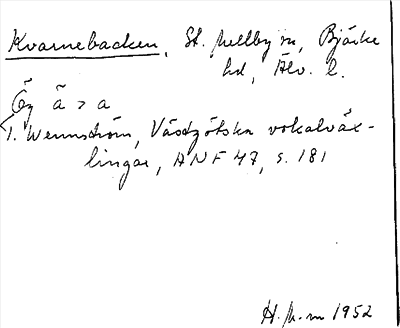 Kvarnebacken, St. Mellby sn, Bjärke
hd, Älv. l.
Ög ā > a
T. Wennström, Västgötska vokalväx-
lingar, ANF 47, s. 181
H. M-m 1952